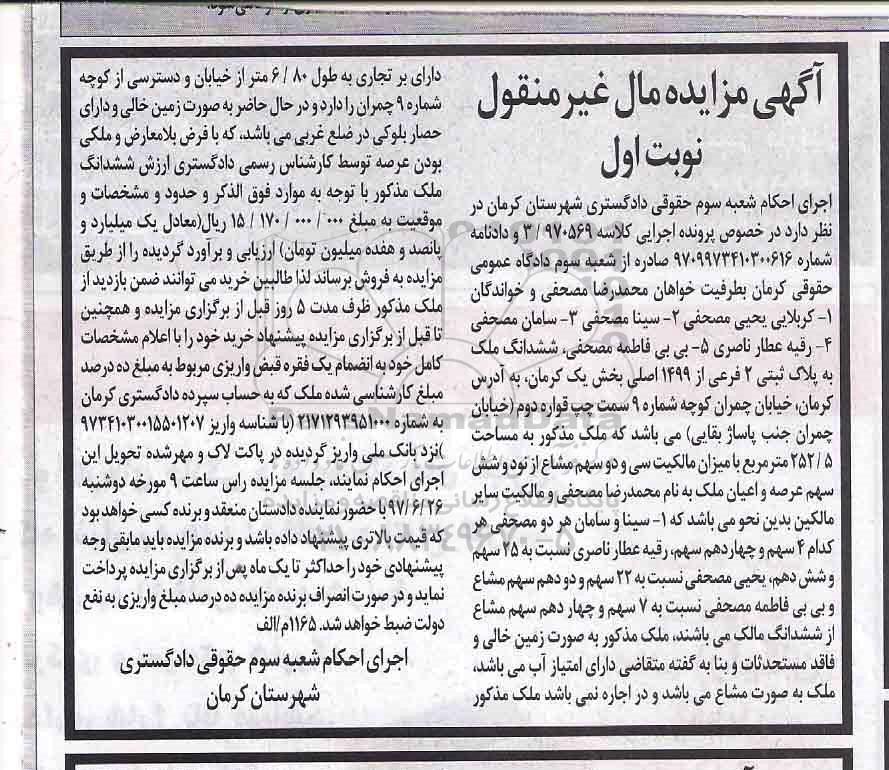 آگهی مزایده مال غیر منقول
نوبت اول
اجرای احکام شعبه سوم حقوقی دادگستری شهرستان کرمان در
نظر دارد در خصوص پرونده اجرایی کلاسه ۹۷۰۵۶۹ / ۳ و دادنامه
شماره ۹۷۰۹۹۷۳۴۱۰۳۰۰۶۱۶ صادره از شعبه سوم دادگاه عمومی
حقوقی کرمان بطرفیت خواهان محمدرضا مصحفی و خواندگان
۱- کربلایی یحیی مصحفی ۲- سینا مصحفی ۳- سامان مصحفی
۴- رقیه عطار ناصری ۵- بی بی فاطمه مصحفی، ششدانگ ملک
به پلاک ثبتی ۲ فرعی از ۱۴۹۹ اصلی بخش یک کرمان، به آدرس
کرمان، خیابان چمران کوچه شماره ۹ سمت چپ قواره دوم (خیابان
چمران جنب پاساژ بقایی) می باشد که ملک مذکور به مساحت
۲۵۲/۵ متر مربع با میزان مالکیت سی و دو سهم مشاع از نود و شش
سهم عرصه و اعیان ملک به نام محمدرضا مصحفی و مالکیت سایر
مالکین بدین نحو می باشد که ۱- سینا و سامان هر دو مصحفی هر
کدام ۴ سهم و چهار دهم سهم، رقیه عطار ناصری نسبت به ۲۵ سهم
و شش دهم، یحیی مصحفی نسبت به ۲۲ سهم و دو دهم سهم مشاع
و بی بی فاطمه مصحفی نسبت به ۷ سهم و چهار دهم سهم مشاع
از ششدانگ مالک می باشند، ملک مذکور به صورت زمین خالی و
فاقد مستحدثات و بنا به گفته متقاضی دارای امتیاز آب می باشد،
ملک به صورت مشاع می باشد و در اجاره نمی باشد ملک مذکور
دارای بر تجاری به طول ۸۰ / ۶ متر از خیابان و دسترسی از کوچه
شماره ۹ چمران را دارد و در حال حاضر به صورت زمین خالی و دارای
حصار بلوکی در ضلع غربی می باشد، که با فرض بلامعارض و ملکی
بودن عرصه توسط کارشناس رسمی دادگستری ارزش ششدانگ
ملک مذکور با توجه به موارد فوق الذکر و حدود و مشخصات و
موقعیت به مبلغ ۰۰۰/ ۰۰۰ / ۱۷۰ / ۱۵ ریال(معادل یک میلیارد و
پانصد و هفده میلیون تومان) ارزیابی و برآورد گردیده را از طریق
مزایده به فروش برساند لذا طالبین خرید می توانند ضمن بازدید از
ملک مذکور ظرف مدت ۵ روز قبل از برگزاری مزایده و همچنین
تا قبل از برگزاری مزایده پیشنهاد خرید خود را با اعلام مشخصات
کامل خود به انضمام یک فقره قبض واریزی مربوط به مبلغ ده درصد
مبلغ کارشناسی شده ملک که به حساب سپرده دادگستری کرمان
به شماره ۲۱۷۱۲۹۳۹۵۱۰۰۰ (با شناسه واریز ۹۷۳۴۱۰۳۰۰۱۵۵۰۱۲۰۷
)نزد بانک ملی واریز گردیده در پاکت لاک و مهر شده تحویل این
اجرای احکام نمایند، جلسه مزایده راس ساعت ۹ مورخه دوشنبه
۹۷/۶/۲۶ با حضور نماینده دادستان منعقد و برنده کسی خواهد بود
که قیمت بالاتری پیشنهاد داده باشد و برنده مزایده باید مابقی وجه
پیشنهادی خود را حداکثر تا یک ماه پس از برگزاری مزایده پرداخت
نماید و در صورت انصراف برنده مزایده ده درصد مبلغ واریزی به نفع
دولت ضبط خواهد شد. ۱۱۶۵م/الف
اجرای احکام شعبه سوم حقوقی دادگستری
شهرستان کرمان